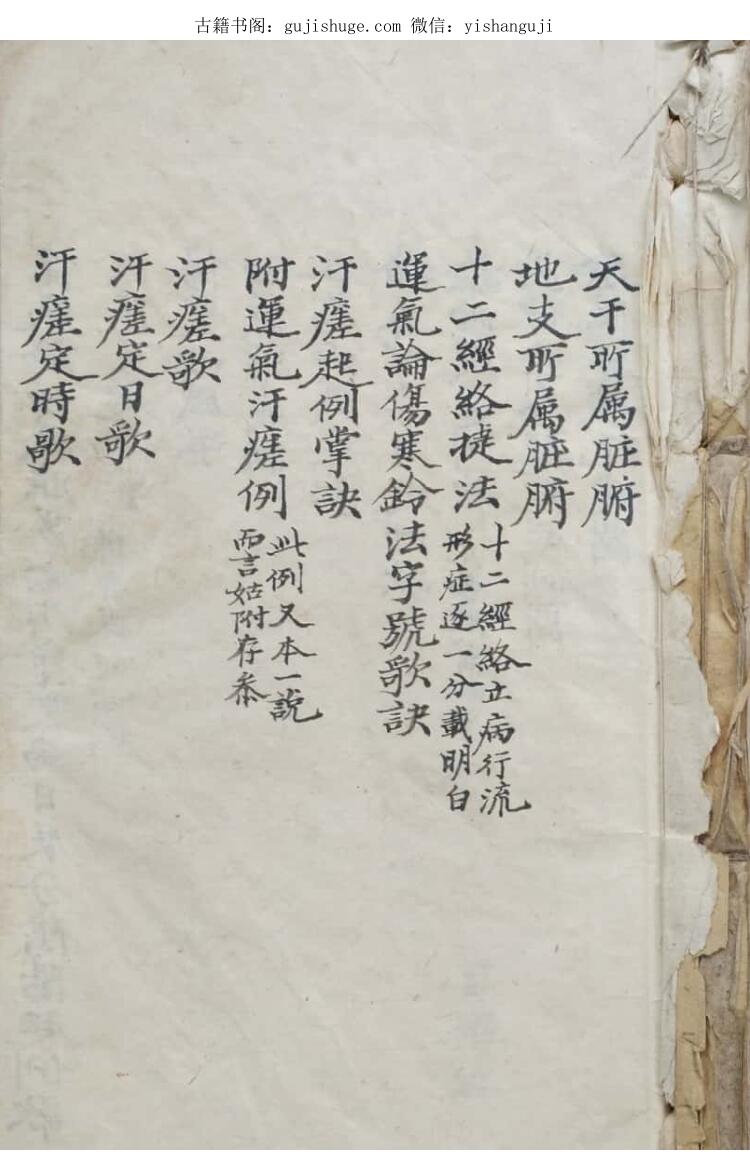 古籍书阁：gujishuge.com 微信：yishanguji
天干所属脏腑
地支所属脏腑
十二經絡捷法
十二經絡立病行流
形症逐一分載明白
運氣論傷寒鈴法字號歌訣
汗瘥起例掌訣
附運氣汗瘥例
此例又本一說
而言姑附存叅
汗瘥歌
汗瘥定日歌
汗瘥定時歌